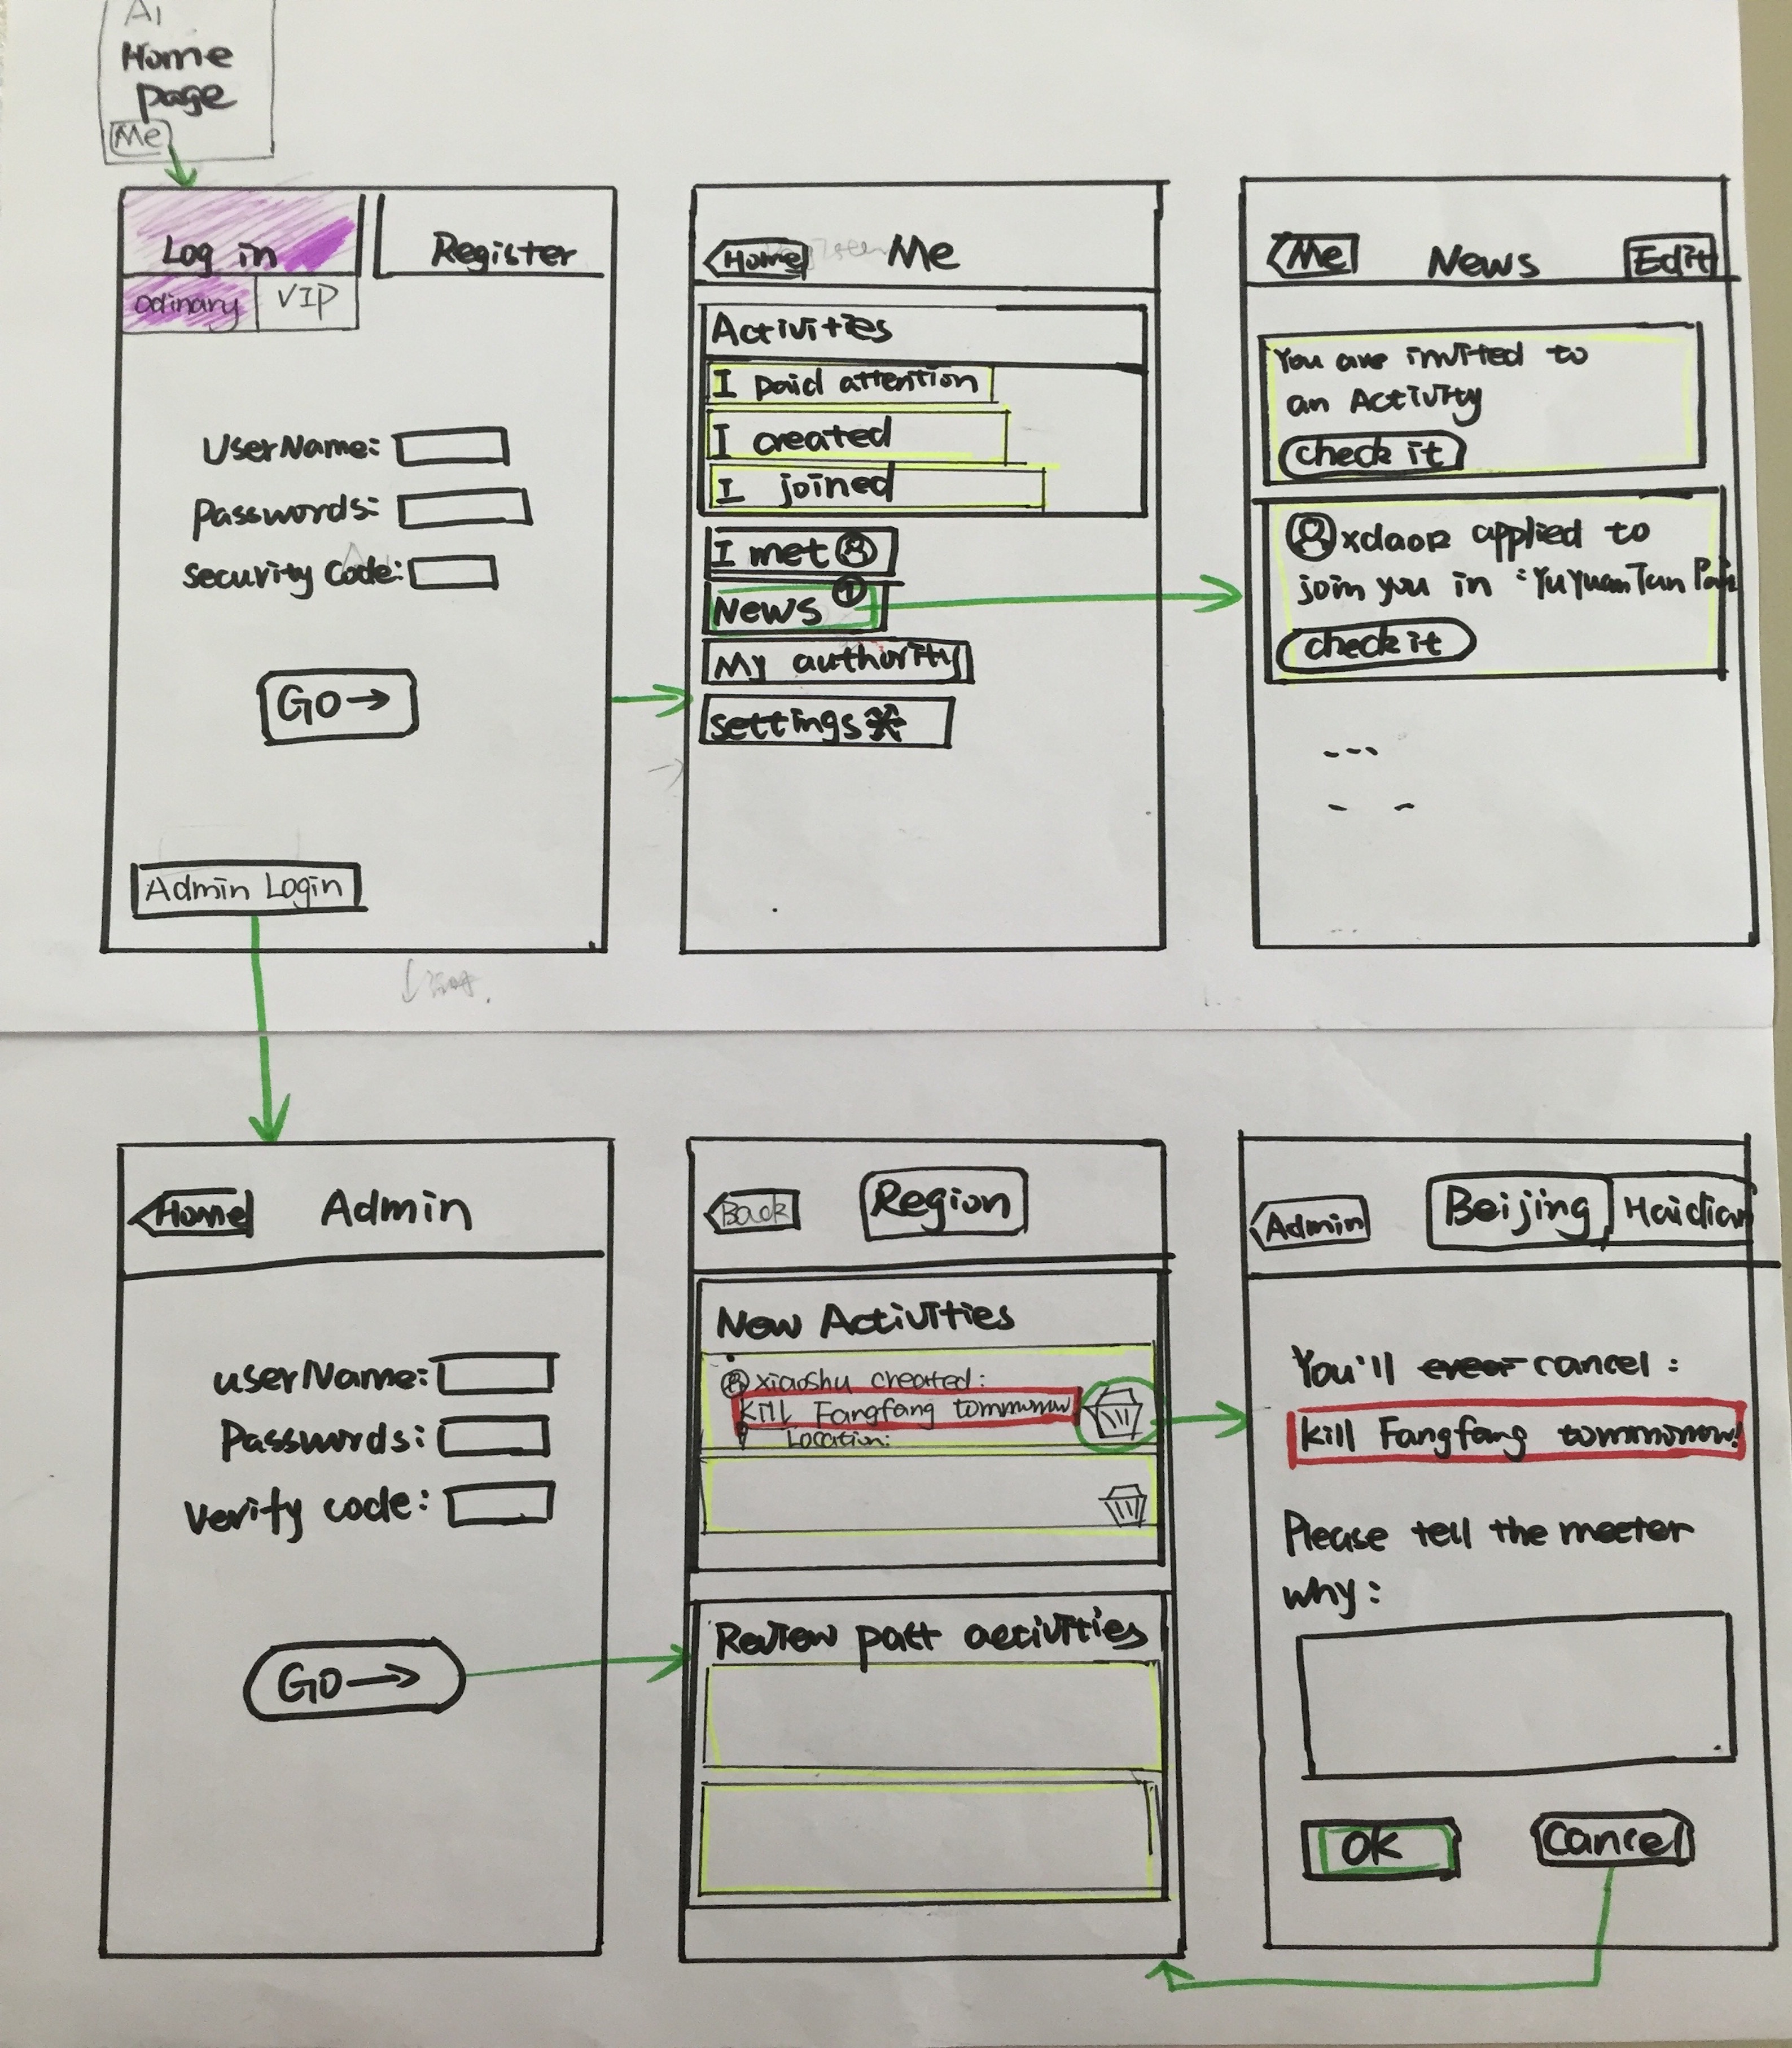 AI
Home
page
Me
Log in
Register
odinary
VIP
UserName:
Passwords:
security Code:
GO→
Admin Login
Home
Me
Activities
I paid attention
I created
I joined
I met
News 1
My authority
settings
Me
News
Edit
You are invited to
an Activity
check it
applied to
join you in :YuYuanTan
check it
Home
Admin
userName:
Passwords:
Verify code:
GO→
Back
Region
New Activities
xiaoshu created:
Kill Fangfang tommorow
Location:
Review patt activities
Admin
Beijing
Haidian
You'll cancel:
Kill Fangfang tommorrow!
Please tell the meeter
why:
OK
Cancel